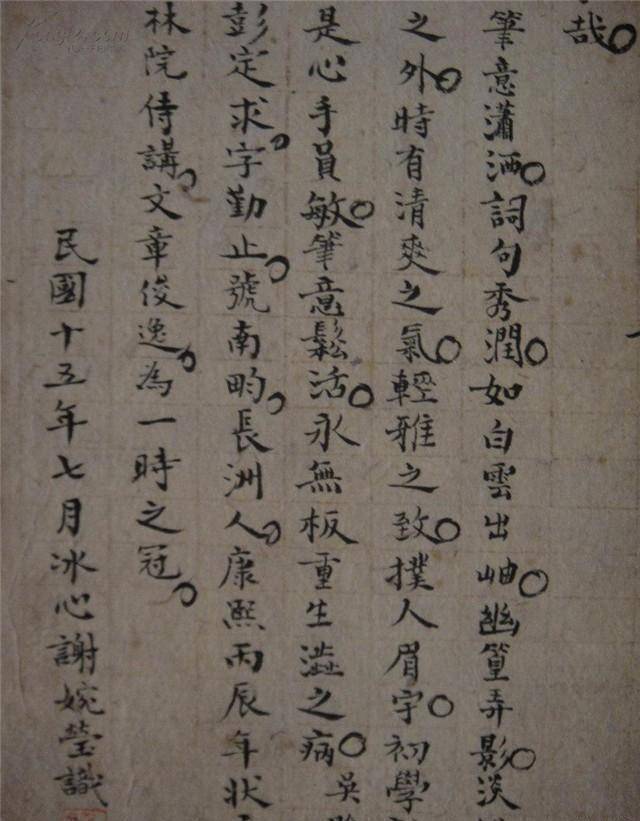 哉。
筆意瀟洒。詞句秀潤。如白雲出岫。幽篁弄影。淡
之外。時有清爽之氣。輕雅之致。撲人眉宇。初學
是心手員敏。筆意鬆活。永無板重生澁之病。吳
彭定求。字勤止。號南畇。長洲人。康熙丙辰年状
林院侍講。文章俊逸。為一時之冠。
民國十五年七月冰心謝婉瑩識